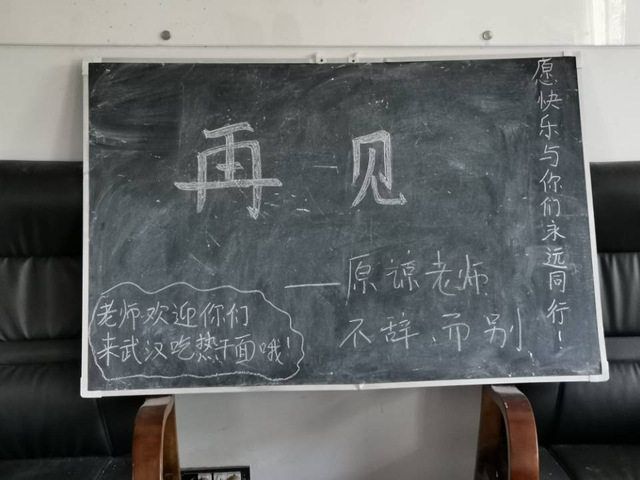 再见
——原谅老师
不辞而别
愿快乐与你们永远同行！
老师欢迎你们
来武汉吃热干面哦！